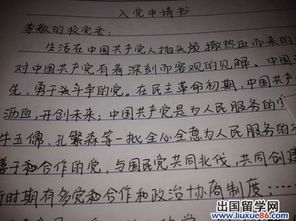 入党申请书
尊敬的敌党委:
生活在中国共产党人抛头颅撒热血而来的
对中国共产党有着深刻而客观的见解。中国
先,勇于战斗牢的党。在民主革命初期,中国共
沥血,开创未来;中国共产党是为人民服务的
牛玉儒、孔繁森等一批全心全意为人民服务的
善于和合作的党,与国民党共同北伐,共同创建
新时期有多党和合作和政治协商制度;……
出国留学网
www.liuxue86.com